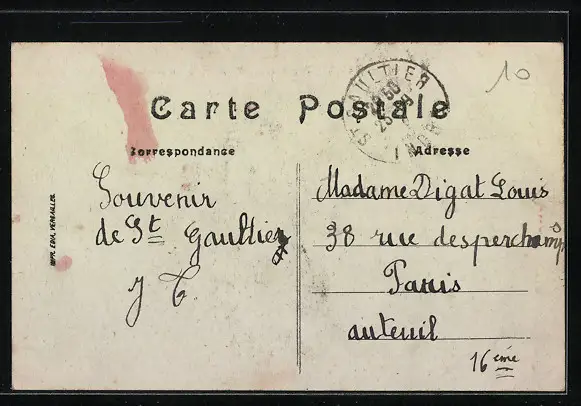 10
Carte Postale
ST GAULTIER
INDRE
Correspondance
Adresse
Souvenir
de St Gaultier
Madame Digat Louis
38 rue desperchamps
Paris
auteuil
16 ème
IMPR. EDIA, VERSAILLES